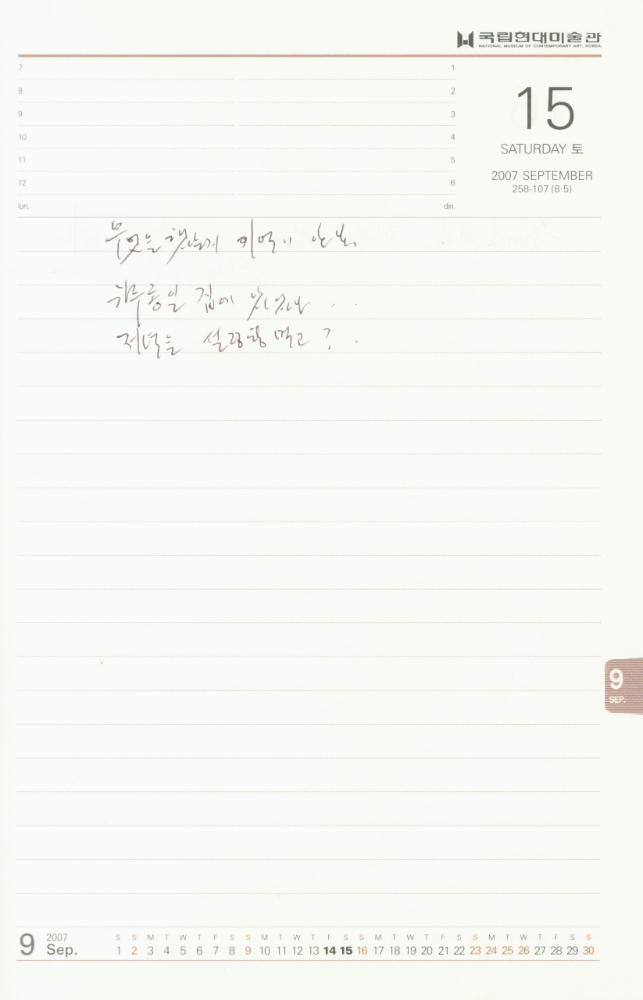 국립현대미술관
NATIONAL MUSEUM OF CONTEMPORARY ART, KOREA
7 1
8 2
9 3
10 4
11 5
12 6
lun. din.
15
SATURDAY 토
2007 SEPTEMBER
258-107 (8·5)
무엇을 했는지 기억이 안나.
하루종일 집에 있었나 . .
저녁은 설렁탕 먹고 ? .
9
SEP.
9 2007 Sep.
S S M T W T F S S M T W T F S S M T W T F S S M T W T F S S
1 2 3 4 5 6 7 8 9 10 11 12 13 14 15 16 17 18 19 20 21 22 23 24 25 26 27 28 29 30